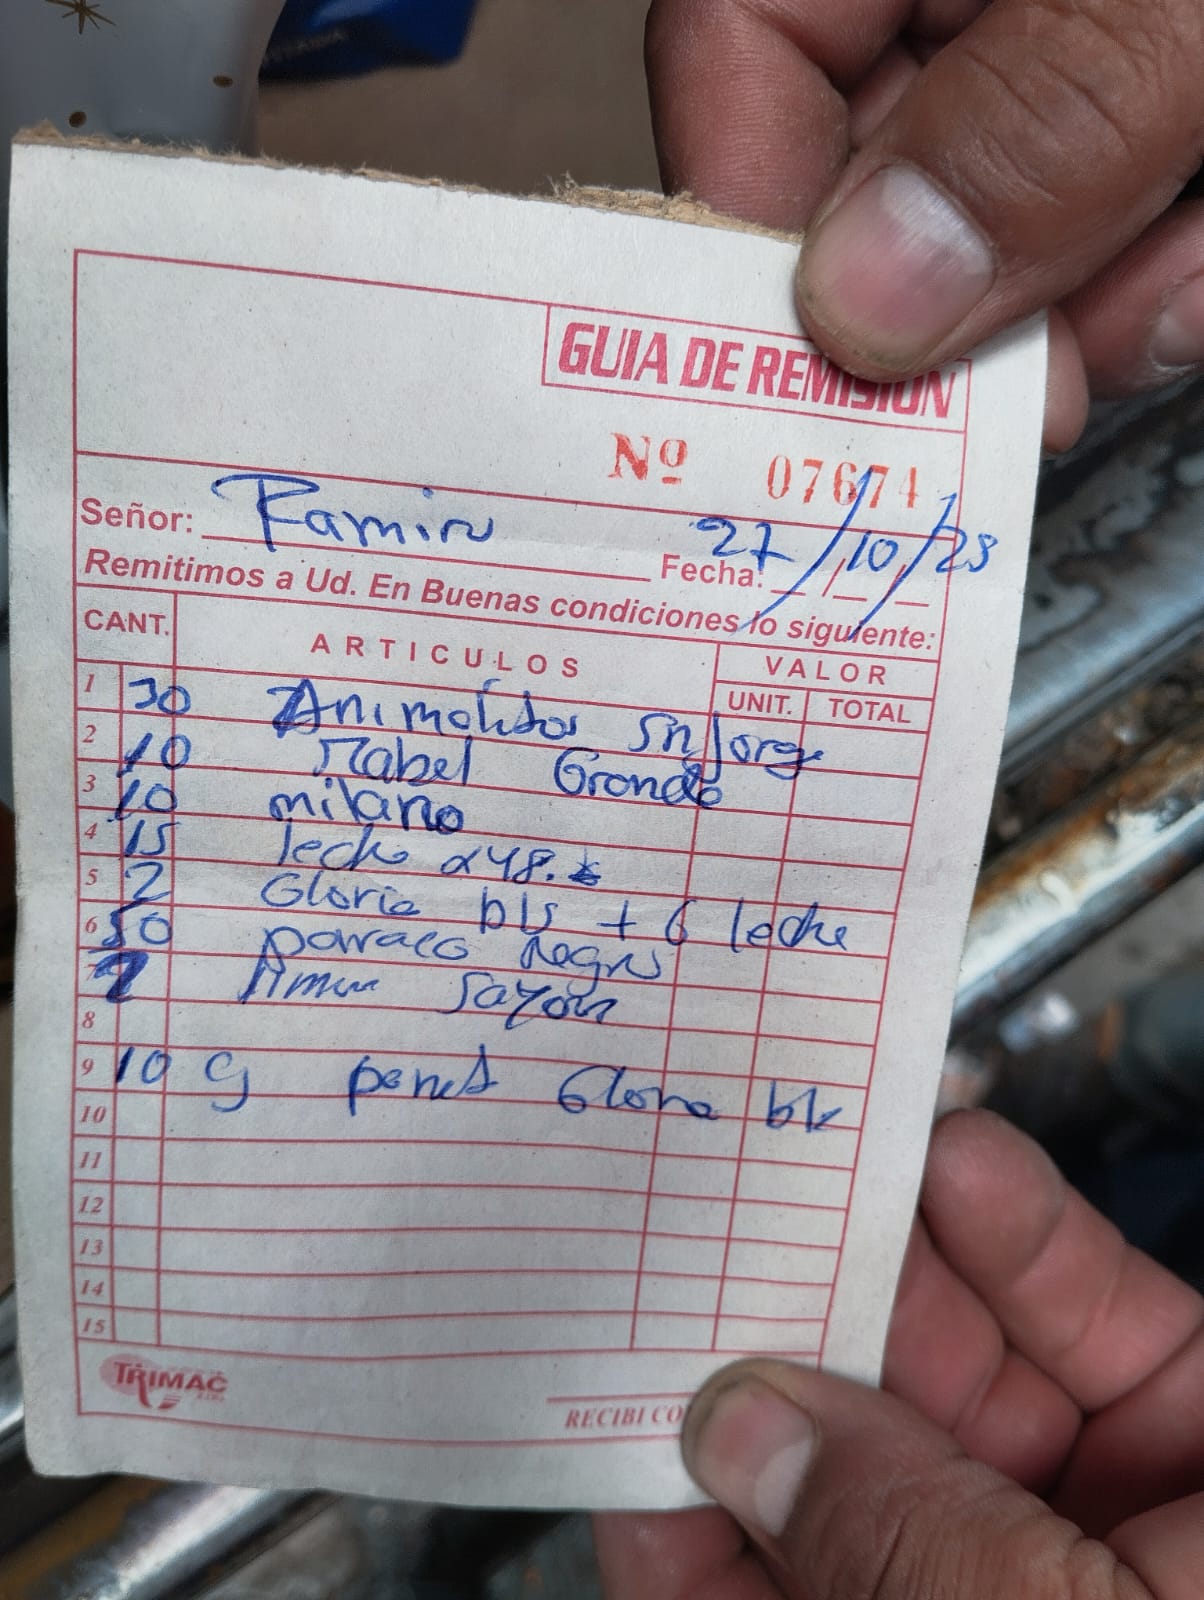 GUIA DE REMISIÓN
Nº 07674
Señor: Ramiro Fecha: 27/10/25
Remitimos a Ud. En Buenas condiciones lo siguiente:
CANT. ARTICULOS VALOR
UNIT. TOTAL
1 30 Animalitos Sn Jorge
2 10 Mabel Grande
3 10 milano
4 15 leche x48.
5 2 Gloria bls + 6 leche
6 50 paraco negro
7 2 Sayon
8
9 10 g Gloria bls
10
11
12
13
14
15
TRIMAC
RECIBI CO